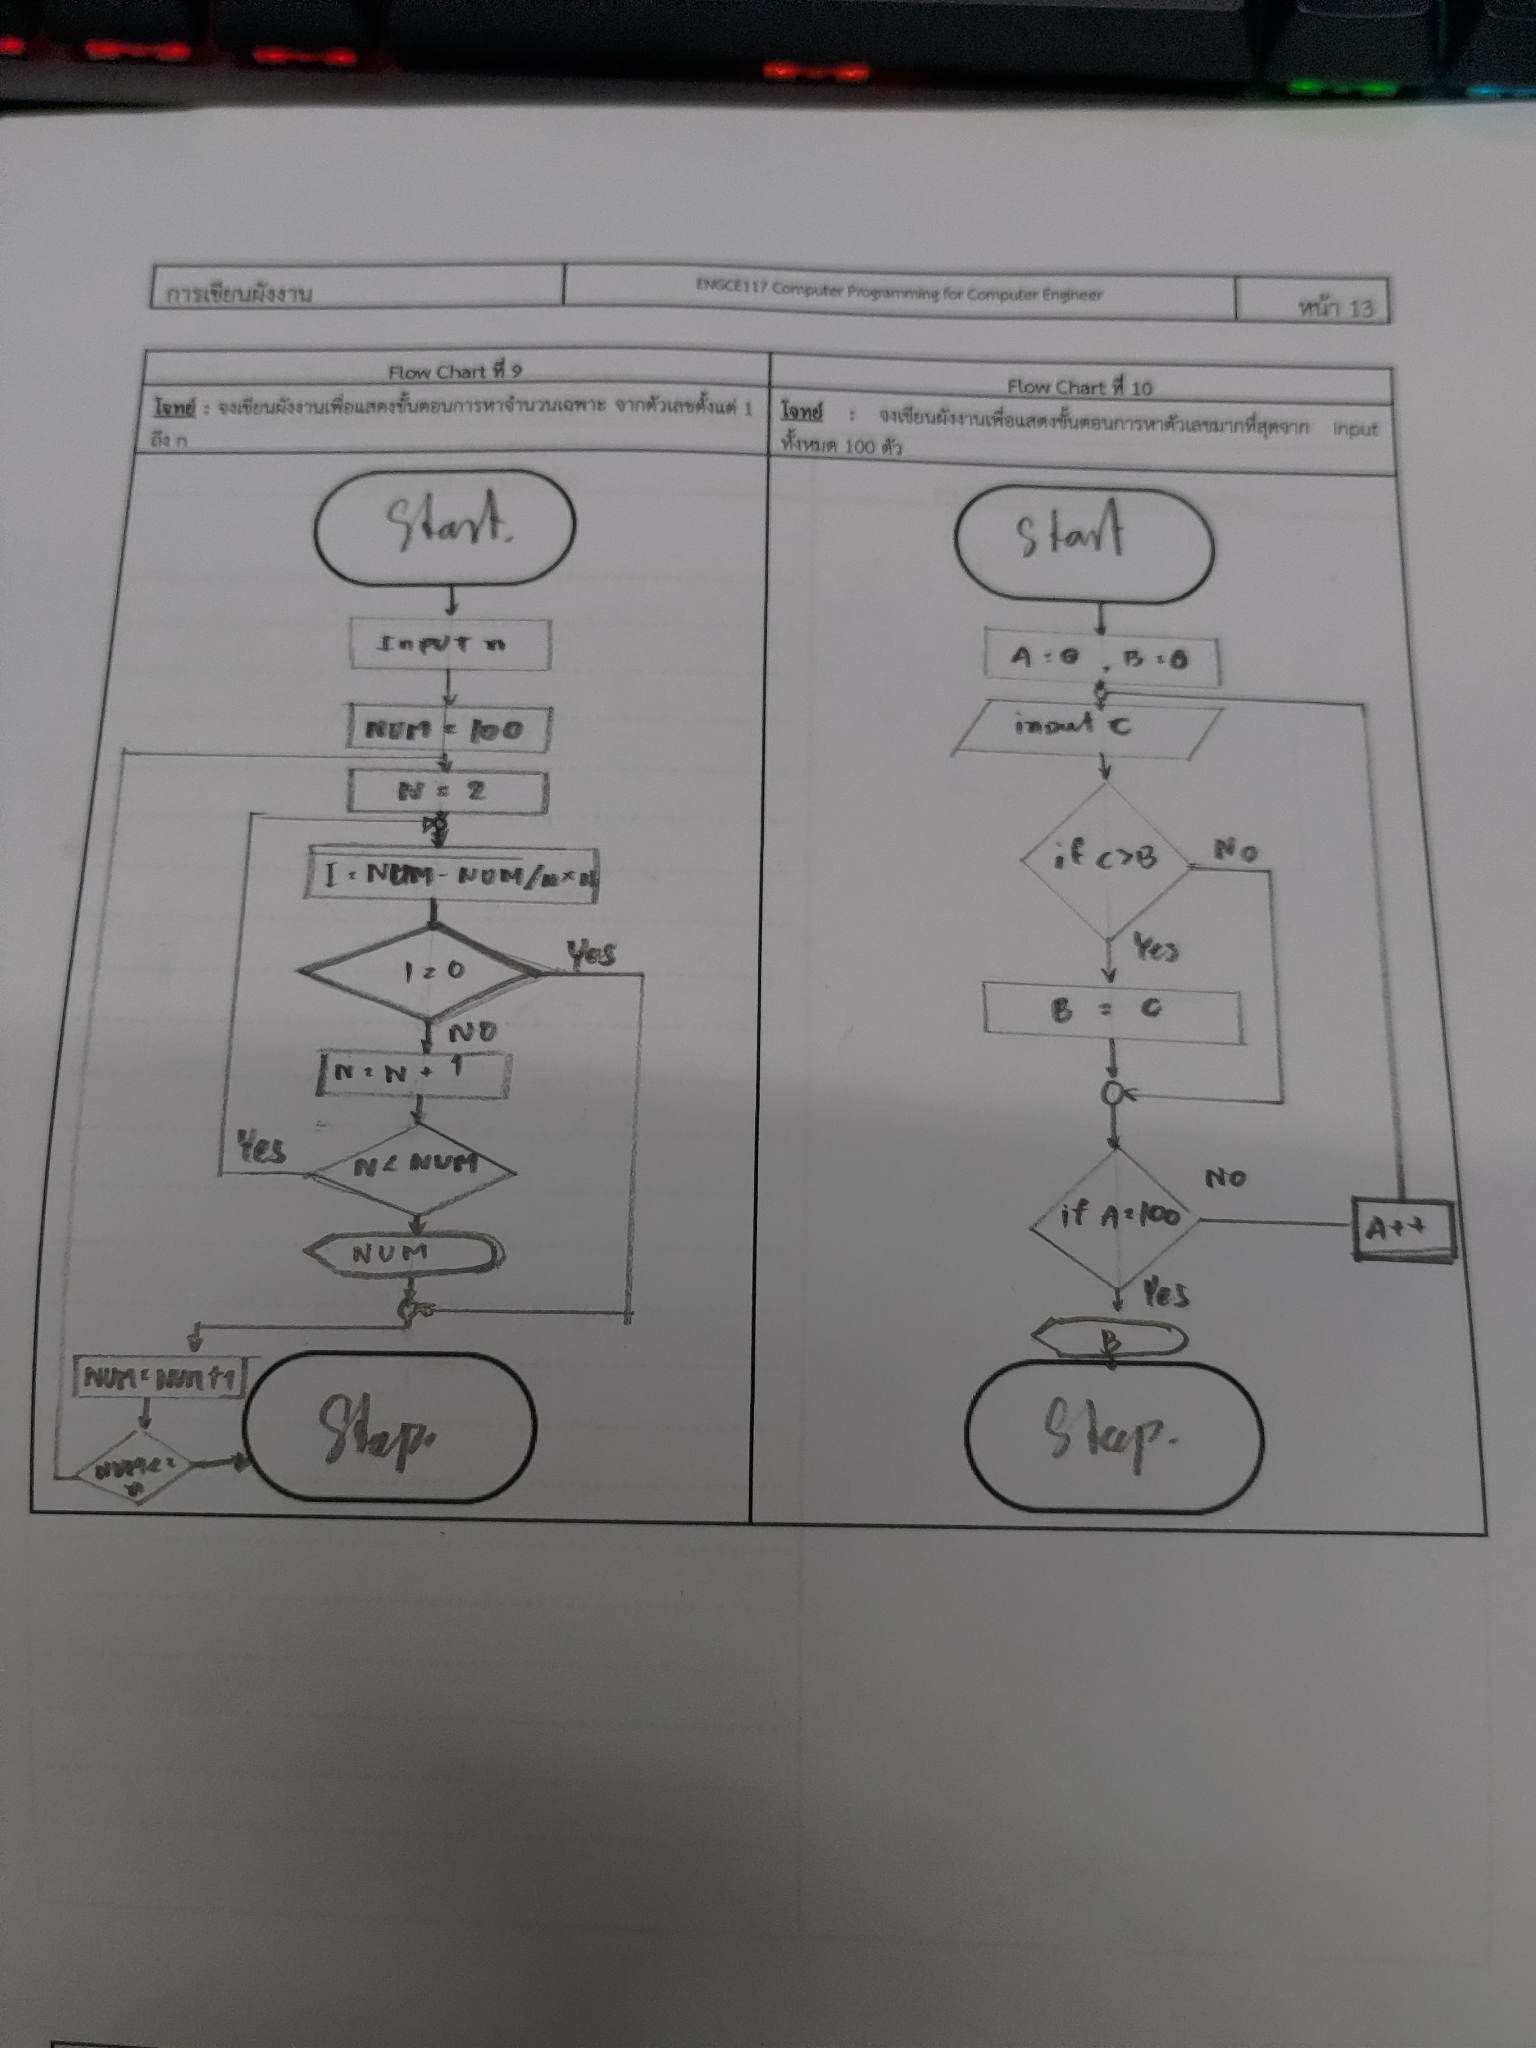 การเขียนผังงาน
ENGCE117 Computer Programming for Computer Engineer
หน้า 13
Flow Chart ที่ 9
โจทย์ : จงเขียนผังงานเพื่อแสดงขั้นตอนการหาจำนวนเฉพาะ จากตัวเลขตั้งแต่ 1
ถึง n
Start.
Input n
NUM = 100
N = 2
I = NUM - NUM/N×N
I = 0
Yes
NO
N = N + 1
N < NUM
Yes
NUM
NUM = NUM+1
NUM <=
n
Stop.
Flow Chart ที่ 10
โจทย์ : จงเขียนผังงานเพื่อแสดงขั้นตอนการหาตัวเลขมากที่สุดจาก Input
ทั้งหมด 100 ตัว
Start
A = 0 , B = 0
input C
if C>B
NO
Yes
B = C
if A=100
NO
A++
Yes
B
Stop.